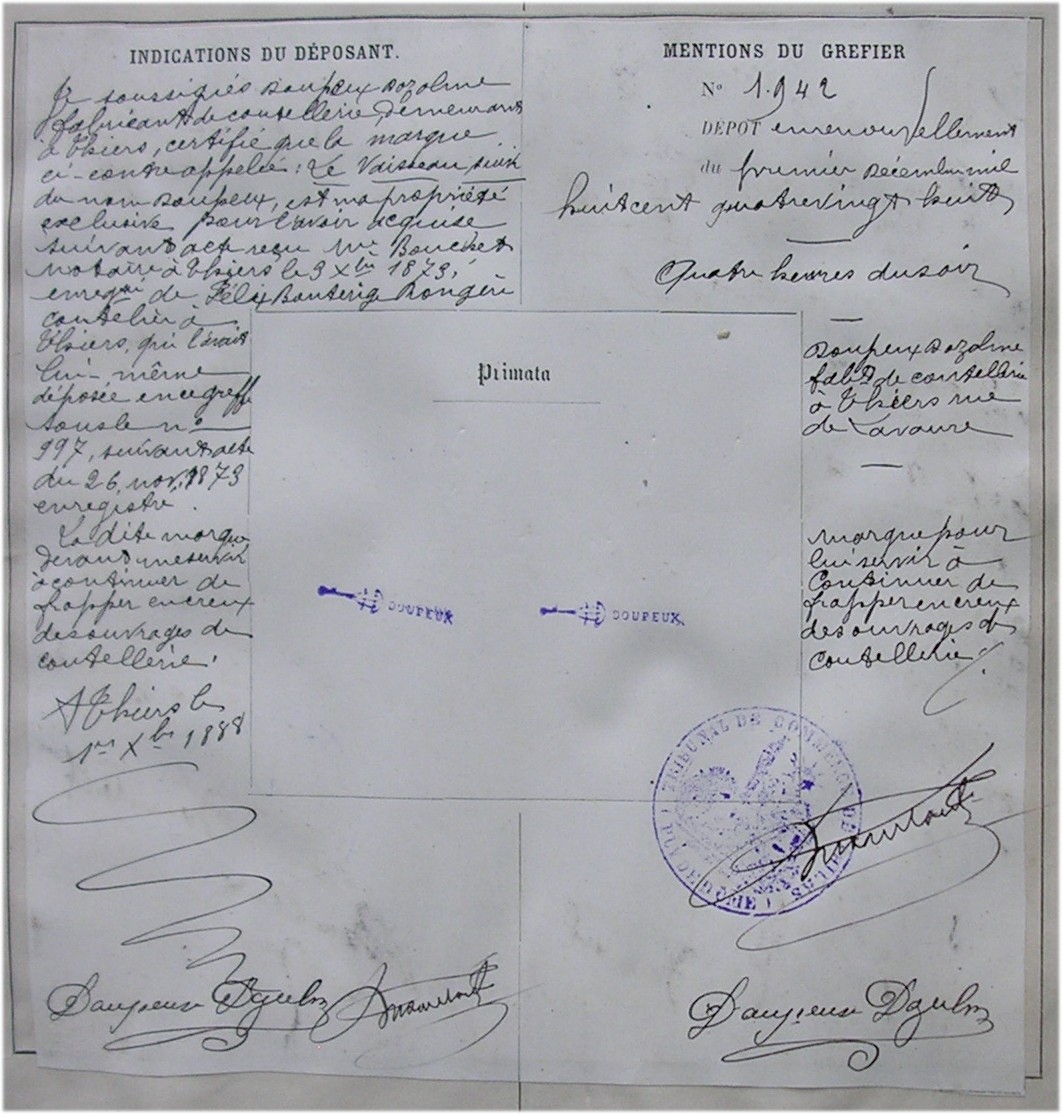 INDICATIONS DU DÉPOSANT.
Je soussignés Doupeux Dozolme
fabricant de coutellerie, demeurant
à Thiers, certifie que la marque
ci-contre appelée : Le Vaisseau suivi
du nom Doupeux, est ma propriété
exclusive pour l'avoir acquise
suivant acte reçu Me Bouchet
notaire à Thiers le 3 Xbre 1873,
enregé de Félix Bouterige Rongère
coutelier à
Thiers, qui l'avait
lui-même
déposée en ce greffe
sous le no
997, suivant acte
du 26 nov. 1873
enregistré.
La dite marque
devant me servir
à continuer de
frapper en creux
des ouvrages de
coutellerie.
A Thiers le
1er Xbre 1888
MENTIONS DU GREFIER
No 1.942
DÉPOT en renouvellement
du premier Décembre mil
huit cent quatre vingt huit
Quatre heures du soir
Doupeux Dozolme
fabt de coutellerie
à Thiers rue
de Lavaure
marque pour
lui servir à
continuer de
frapper en creux
des ouvrages de
coutellerie.
Primata
DOUPEUX
DOUPEUX
TRIBUNAL DE COMMERCE DE THIERS
PUY DE DOME